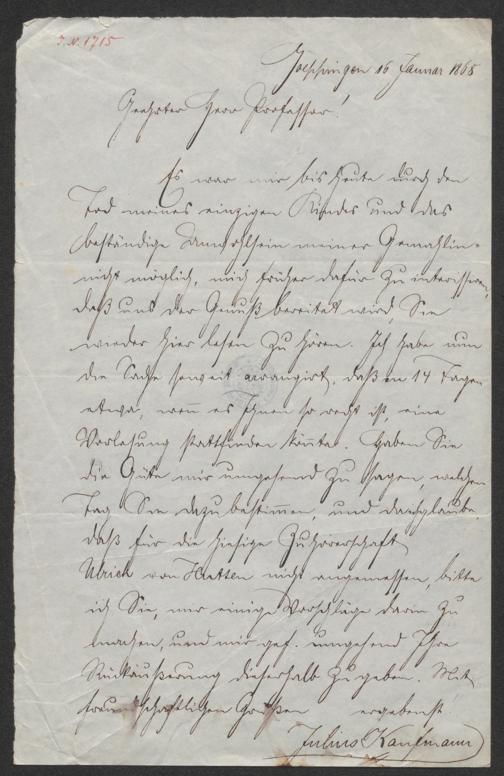 J. N. 1715
Goeppingen 16 Januar 1865
Geehrter Herr Professor!
Es war mir bis heute durch den
Tod meines einzigen Kindes und das
beständige Unwohlsein meiner Gemahlin
nicht möglich, mich früher dafür zu interessiren,
daß uns der Genuß bereitet wird, Sie
wieder hier lesen zu hören. Ich habe nun
die Sache soweit arrangirt, daß in 14 Tagen
etwa, wenn es Ihnen so recht ist, eine
Vorlesung stattfinden könnte. Haben Sie
die Güte mir umgehend zu sagen, welchen
Tag Sie dazu bestimmen, und da ich glaube,
daß für die hiesige Zuhörerschaft
Ulrich von Hutten nicht angemessen, bitte
ich Sie, mir einige Vorschläge darin zu
machen, und mir gef. umgehend Ihre
Rückäußerung dieserhalb zu geben. Mit
freundschaftlichen Grüßen ergebenst
Julius Kaufmann